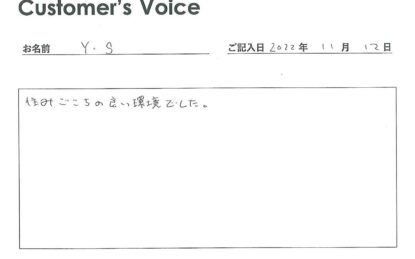 Customer's Voice
お名前 Y・S ご記入日 2022 年 11 月 12 日
住みごこちの良い環境でした。